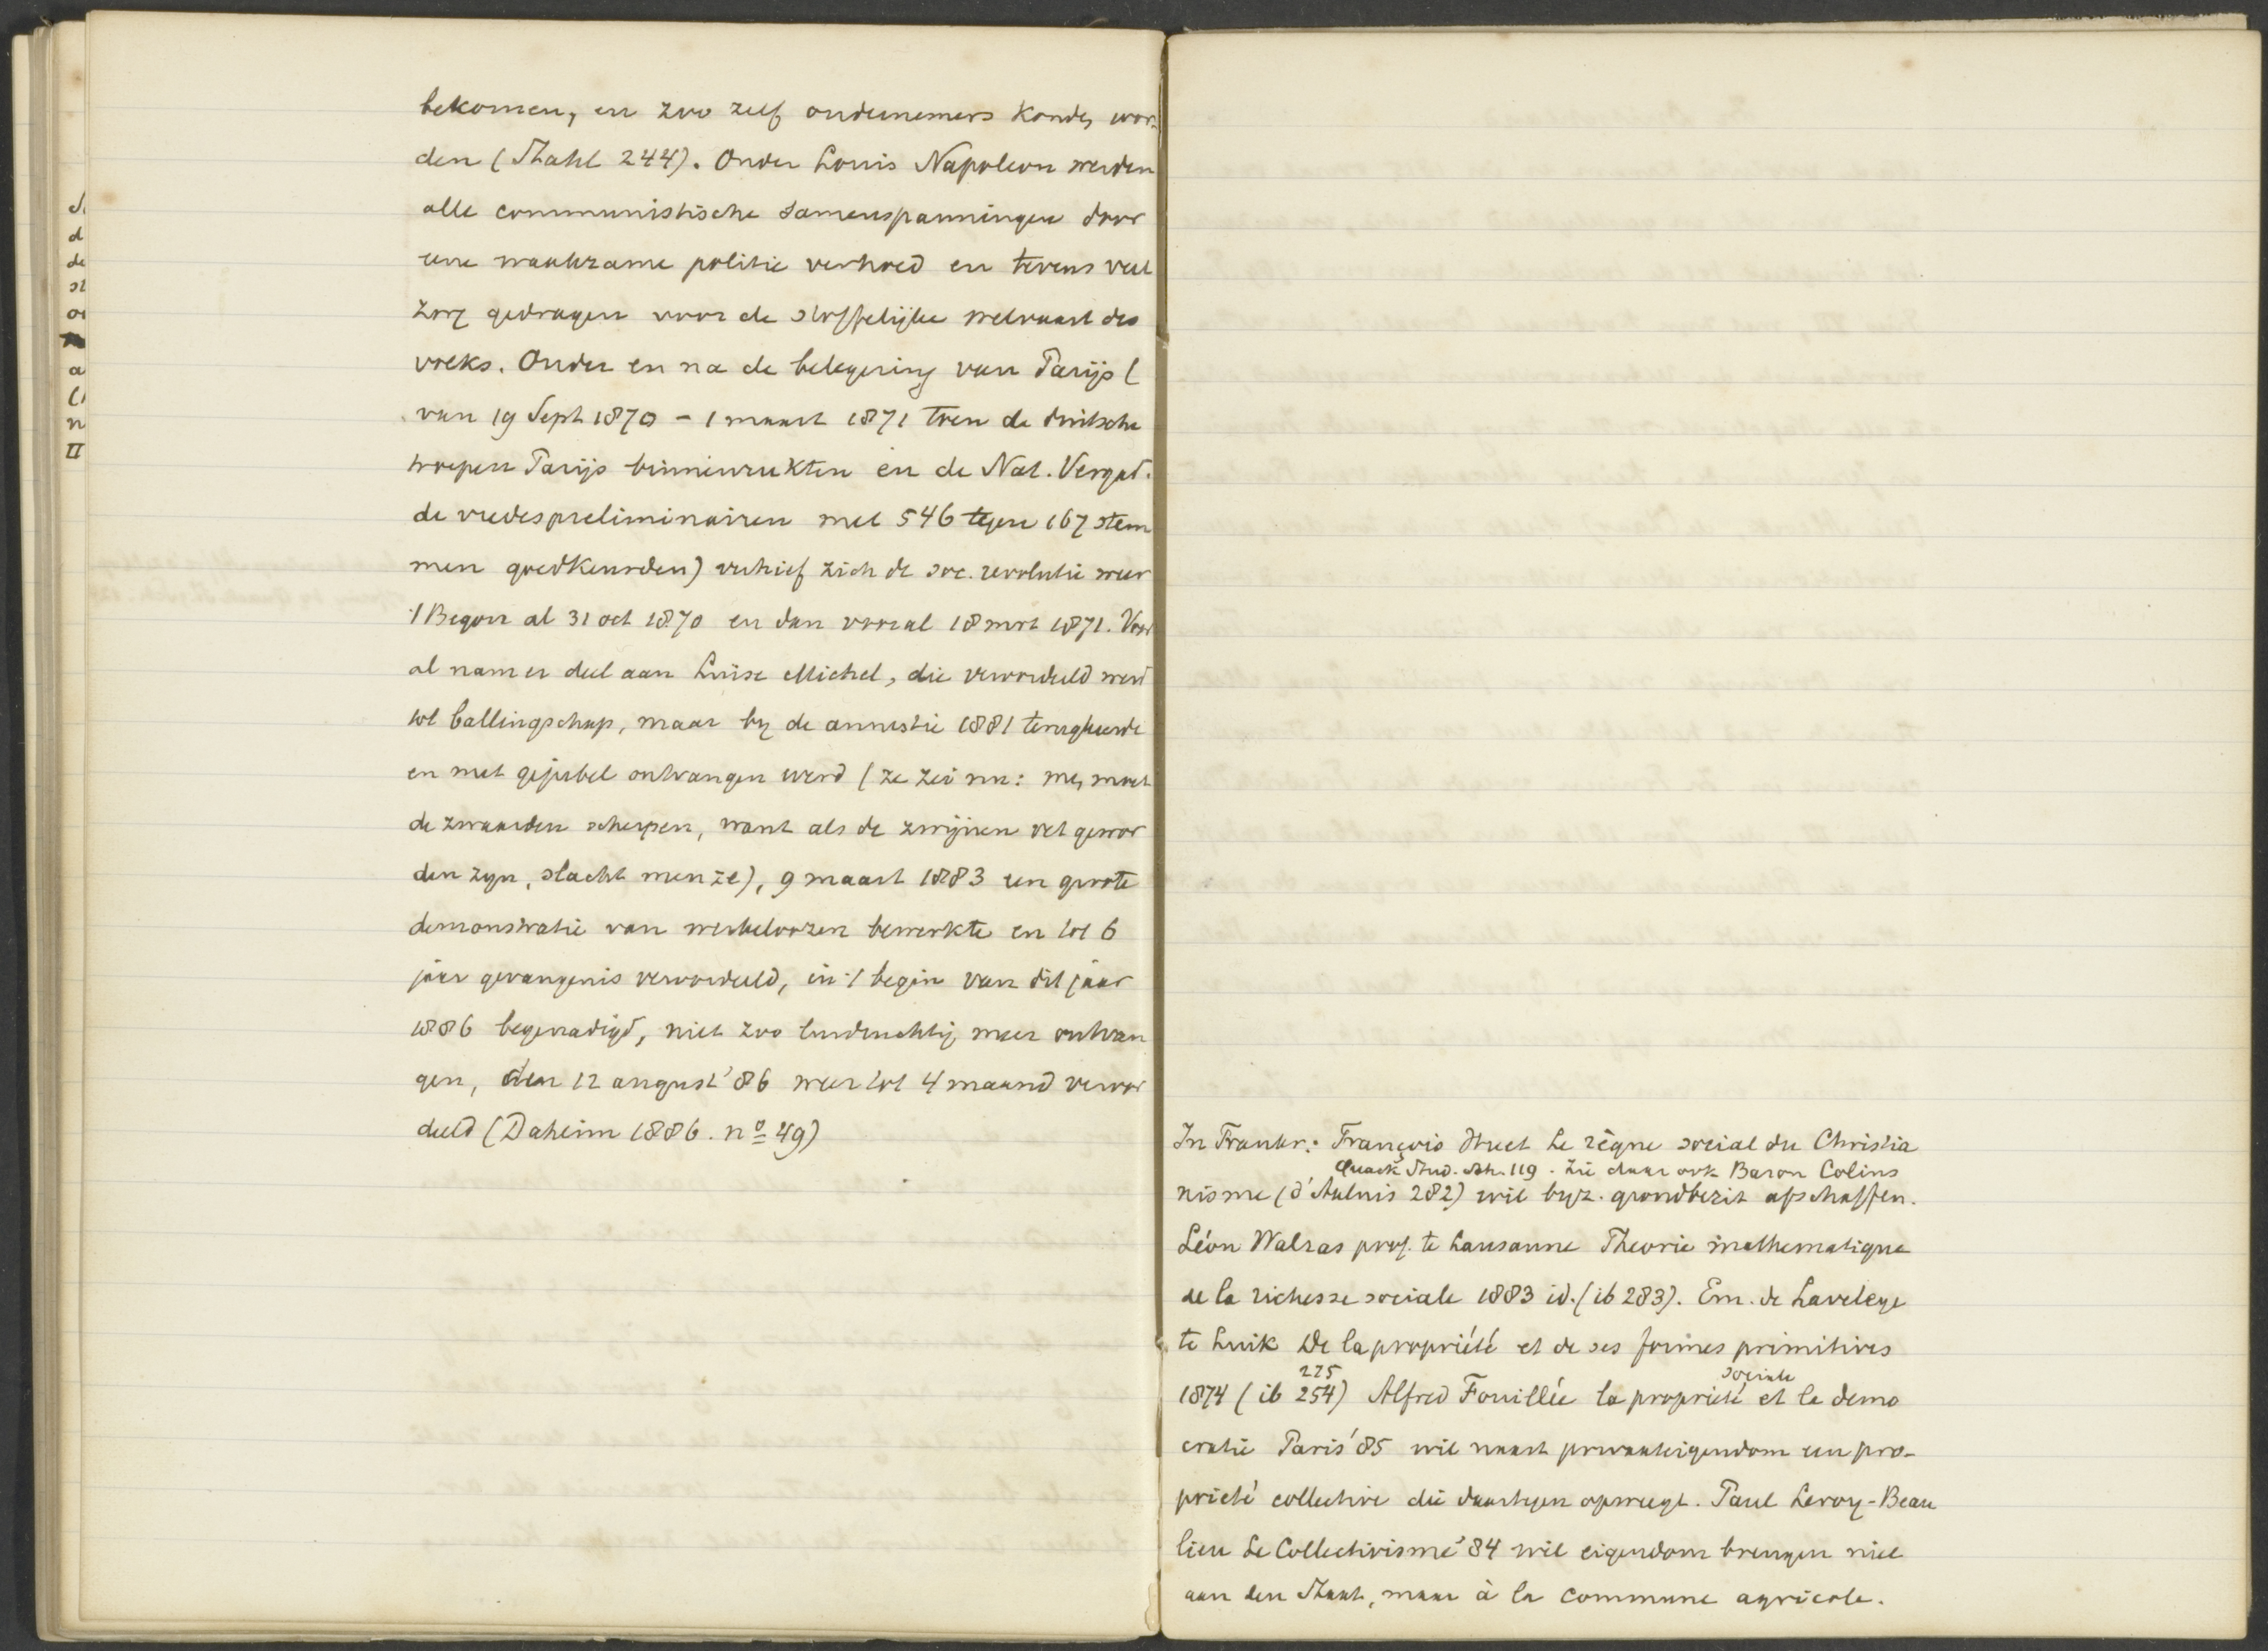 bekomen, en zoo zelf ondernemers konden wor-
den (Stahl 244). Onder Louis Napoleon werden
alle communistische samenspanningen door
eene waakzame politie verhoed en tevens veel
zorg gedragen voor de stoffelijke welvaart des
volks. Onder en na de belegering van Parijs (
van 19 Sept 1870 - 1 maart 1871 toen de duitsche
troepen Parijs binnenrukten en de Nat. Vergad.
de vredespreliminairen met 546 tegen 167 stem
men goedkeurden) verhief zich de soc. revolutie weer
't Begon al 31 oct 1870 en dan vooral 18 mrt 1871. Voor
al nam er deel aan Luise Michel, die veroordeeld werd
tot ballingschap, maar by de amnestie 1881 terugkeerde
en met gejubel ontvangen werd (ze zei nu: men moet
de zwaarden scherpen, want als de zwijnen vet gewor
den zyn, slacht men ze), 9 maart 1883 een groote
demonstratie van werkeloozen bewerkte en tot 6
jaar gevangenis veroordeeld, in 't begin van dit jaar
1886 begenadigd, niet zoo luidruchtig meer ontvan
gen, den 12 august '86 weer tot 4 maand veroor
deeld (Daheim 1886. no 49)
In Frankr: François Huet Le règne social du Christia
Quack Stud. 119. Zie daar ook Baron Colins
nisme (d'Aulnis 282) wil byz. grondbezit afschaffen.
Léon Walras prof. te Lausanne Theorie mathematique
de la richesse sociale 1883 id. (ib 283). Em. de Laveleye
te Luik De la propriété et de ses formes primitives
275 sociale
1874 (ib 254) Alfred Fouillée la proprieté et la demo
cratie Paris '85 wil naast privaateigendom een pro-
prieté collective die daartegen opweegt. Paul Leroy-Beau
lieu Le Collectivisme '84 wil eigendom brengen niet
aan den Staat, maar à la commune agricole.